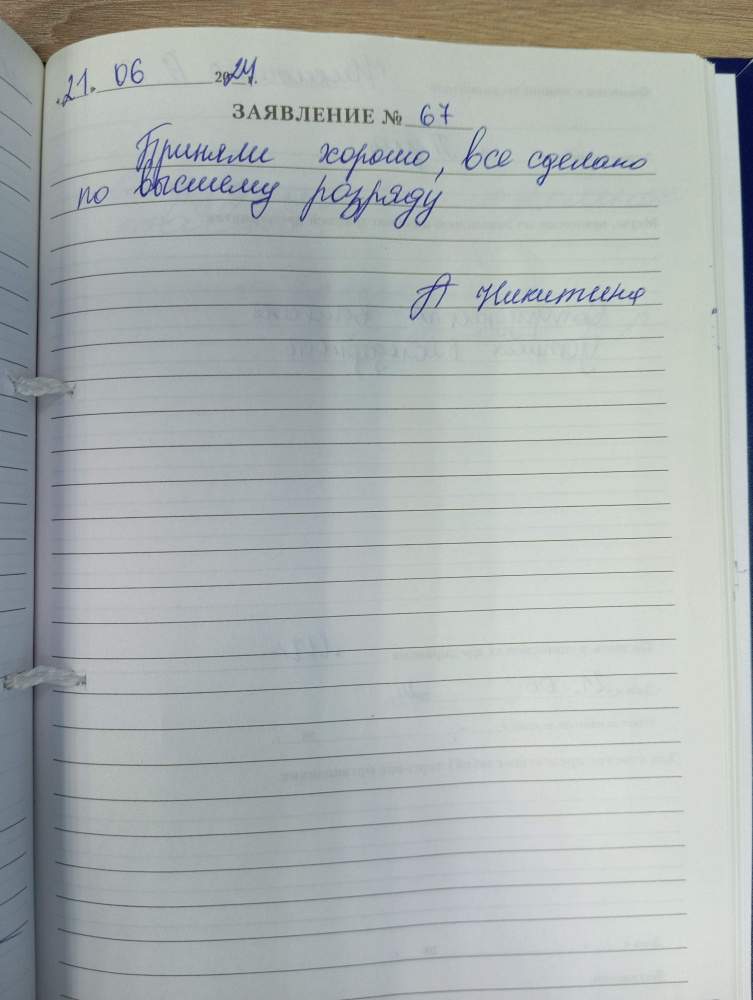 «21» 06 2024г.
ЗАЯВЛЕНИЕ № 67
Приняли хорошо, все сделано
по высшему розряду
А Никитина